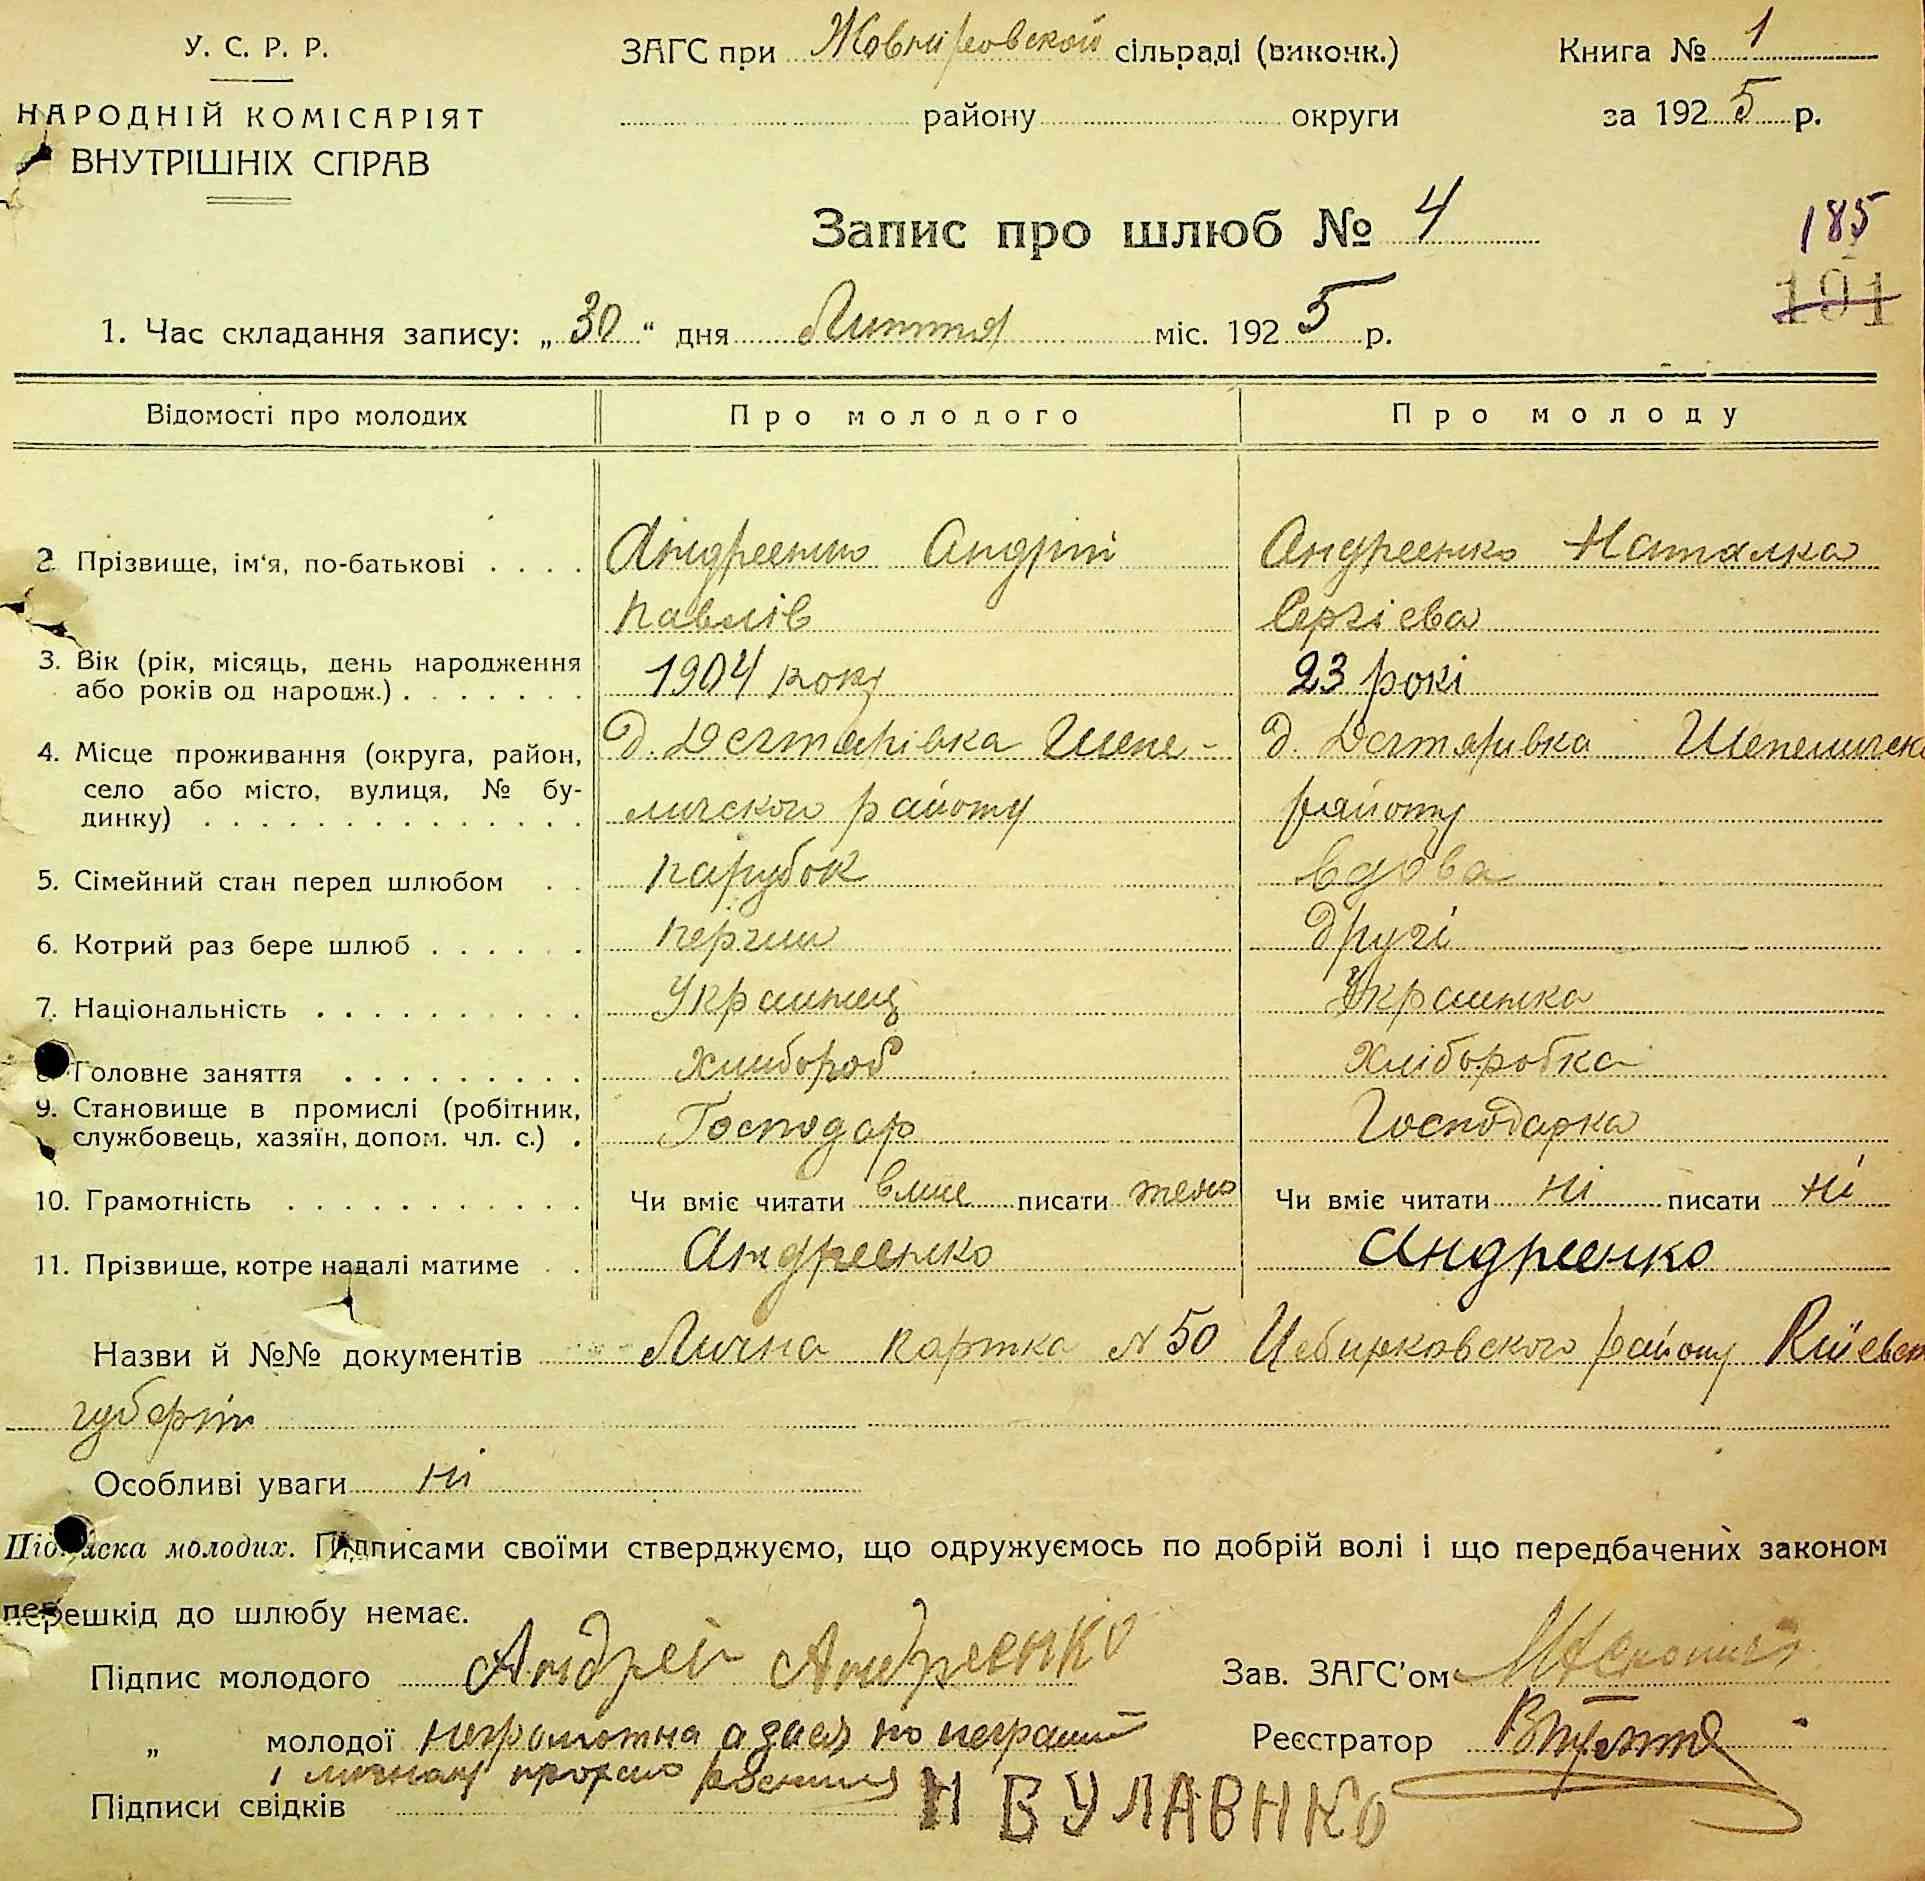 У. С. Р. Р.
НАРОДНІЙ КОМІСАРІЯТ
ВНУТРІШНІХ СПРАВ
ЗАГС при Жовніровской сільраді (виконк.)
району округи
Книга № 1
за 1925 р.
Запис про шлюб № 4
185
191
1. Час складання запису: „30“ дня Липття міс. 1925 р.
Відомості про молодих Про молодого Про молоду
2 Прізвище, ім'я, по-батькові Андреенко Андрій Андреенко Наталка
Павлів Сергієва
3. Вік (рік, місяць, день народження або років од народж.) 1904 року 23 рокі
4. Місце проживання (округа, район, д. Дегтярівка Шепе- д. Дегтяривка Шепеличск
село або місто, вулиця, № бу-
динку) личского району району
5. Сімейний стан перед шлюбом парубок вдова
6. Котрий раз бере шлюб перши другі
7. Національність Украинец Украинка
8. Головне заняття Хлибороб Хліборобка
9. Становище в промислі (робітник,
службовець, хазяїн, допом. чл. с.) Господар Господарка
10. Грамотність Чи вміє читати вмие писати теж Чи вміє читати ні писати ні
11. Прізвище, котре надалі матиме Андреенко Андреенко
Назви й №№ документів Лична картка № 50 району Київск
губернии
Особливі уваги ні
Підписка молодих. Підписами своїми стверджуємо, що одружуємось по добрій волі і що передбачених законом
перешкід до шлюбу немає.
Підпис молодого Андрей Андреенко
Зав. ЗАГС'ом
„ молодої неграмотна а за
і личную
Реєстратор
Підписи свідків Н БУЛАВНКО